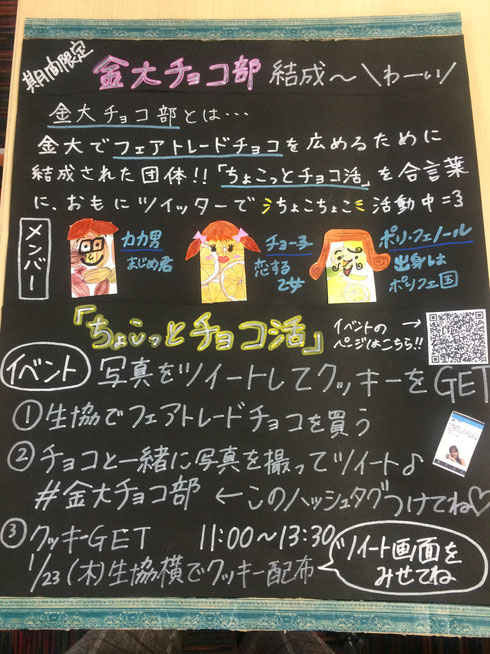 期間限定
金大チョコ部 結成〜\わーい/
金大チョコ部とは…
金大でフェアトレードチョコを広めるために
結成された団体!!「ちょこっとチョコ活」を合言葉
に、おもにツイッターでちょこちょこ活動中=3
メンバー
カカ男
まじめ君
チョー子
恋する
乙女
ポリ・フェノール
出身は
ポリフェ国
「ちょこっとチョコ活」
イベントの
ページはこちら!!
→
イベント
写真をツイートしてクッキーをGET
①生協でフェアトレードチョコを買う
②チョコと一緒に写真を撮ってツイート♪
#金大チョコ部 ←このハッシュタグつけてね♡
③クッキーGET 11:00〜13:30
1/23(木)生協横でクッキー配布
ツイート画面を
みせてね